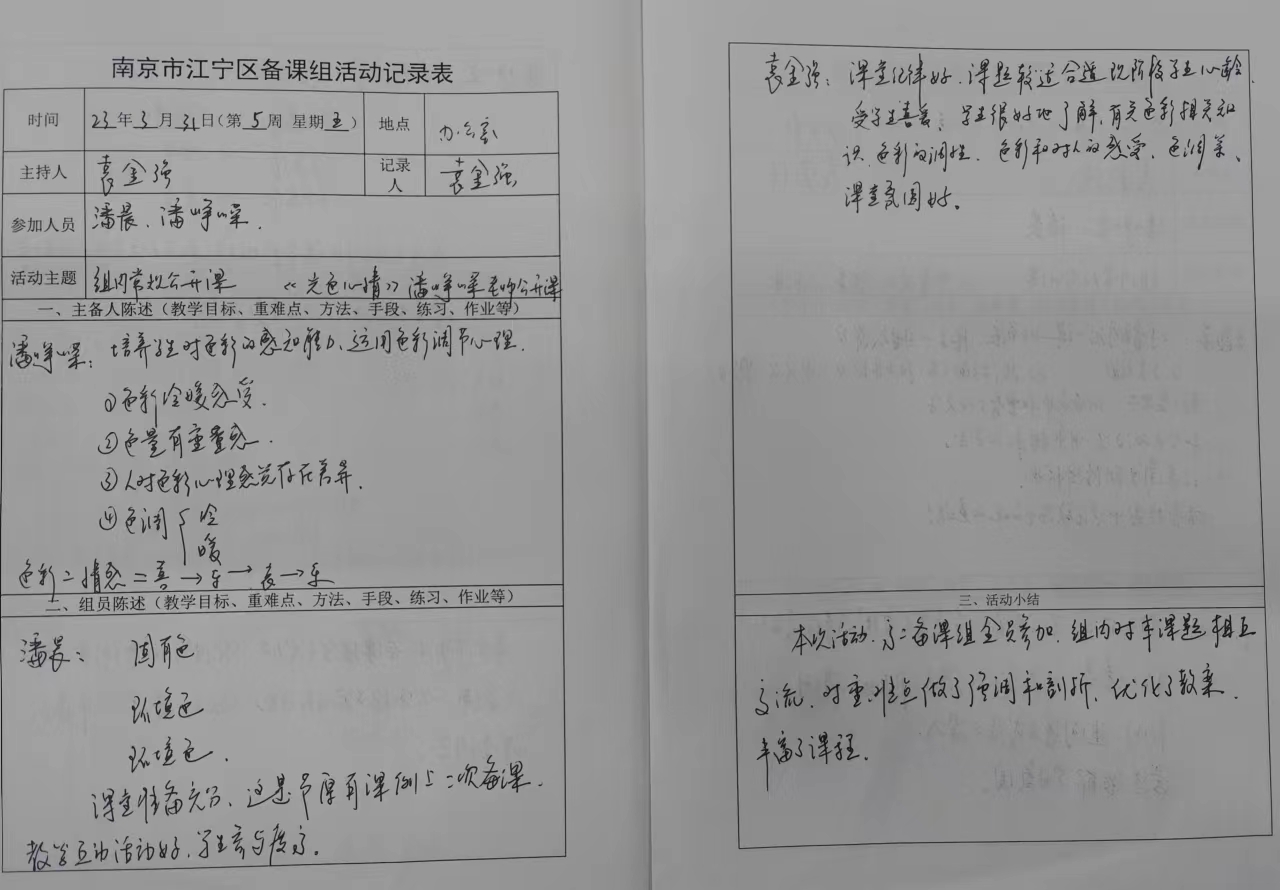 南京市江宁区备课组活动记录表
时间 23年3月31日(第5周 星期五) 地点 办公室
主持人 袁金强 记录人 袁金强
参加人员 潘晨、潘峥嵘.
活动主题 组内常规公开课 《光色心情》潘峥嵘老师公开课
一、主备人陈述（教学目标、重难点、方法、手段、练习、作业等）
潘峥嵘: 培养学生对色彩的感知能力、运用色彩调节心理.
①色彩冷暖感受.
②色量有重量感.
③人对色彩心理感觉存在差异.
④色调{冷
暖
色彩=情感=喜→乐→哀→乐
二、组员陈述（教学目标、重难点、方法、手段、练习、作业等）
潘晨: 固有色
环境色
环境色.
课堂准备充分、这是节原有课例上二次备课.
教学互动活动好.学生参与度高。
袁金强: 课堂纪律好.课题较适合这阶段学生心龄.
受学生喜爱、学生很好地了解,有关色彩相关知
识.色彩的调性、色彩和对人的感受、色调美、
课堂氛围好。
三、活动小结
本次活动.高二备课组全员参加.组内对本课题相互
交流.对重难点做了强调和剖析、优化了教案.
丰富了课程.